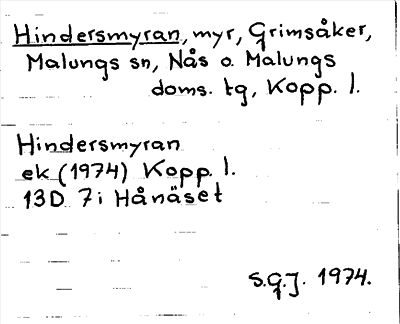 Hindersmyran, myr, Grimsåker,
Malungs sn, Nås o. Malungs
doms. tg, Kopp. l.
Hindersmyran
ek (1974) Kopp. l.
13D 7i Hånäset
S.G.J. 1974.